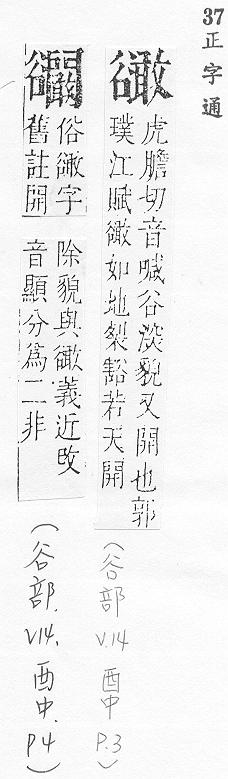 37正字通
豃
虎膽切音喊谷深貌又開也郭
璞江賦豃如地裂豁若天開
(谷部 V.14 酉中 P.3)
俗豃字
舊註開
除貌與豃義近改
音顯分爲二非
(谷部. V14. 酉中. P4)